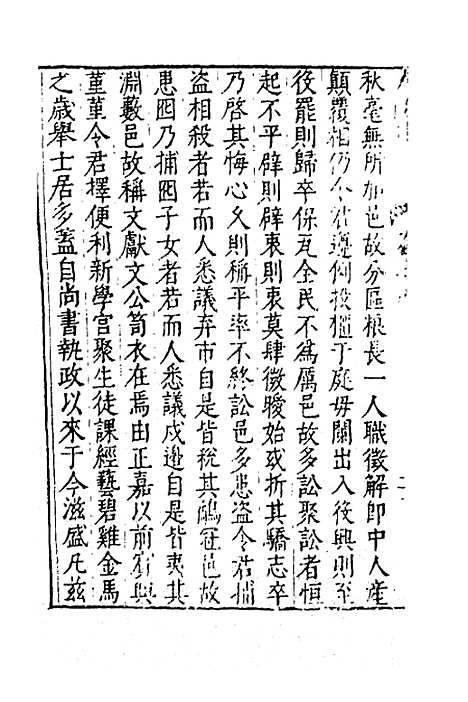 秋毫無所加邑故分區粮長一人職徵解即中人產
顛覆相仍令君遵例投櫃于庭毋闌出入後興則至
後罷則歸卒保瓦全民不為厲邑故多訟聚訟者恒
起不平辟則辟衷則衷莫肆徵曖始或折其驕志卒
乃啓其悔心久則稱平率不終訟邑多患盜令君捕
盜相殺者若而人悉議弃市自是皆稅其鷸冠邑故
患囮乃捕囮子女者若而人悉議戍邊自是皆夷其
淵藪邑故稱文獻文公笥衣在焉由正嘉以前 與
堇堇令君擇便利新學官聚生徒課經藝碧雞金馬
之歲舉士居多蓋自尚書執政以來于今滋盛凡茲